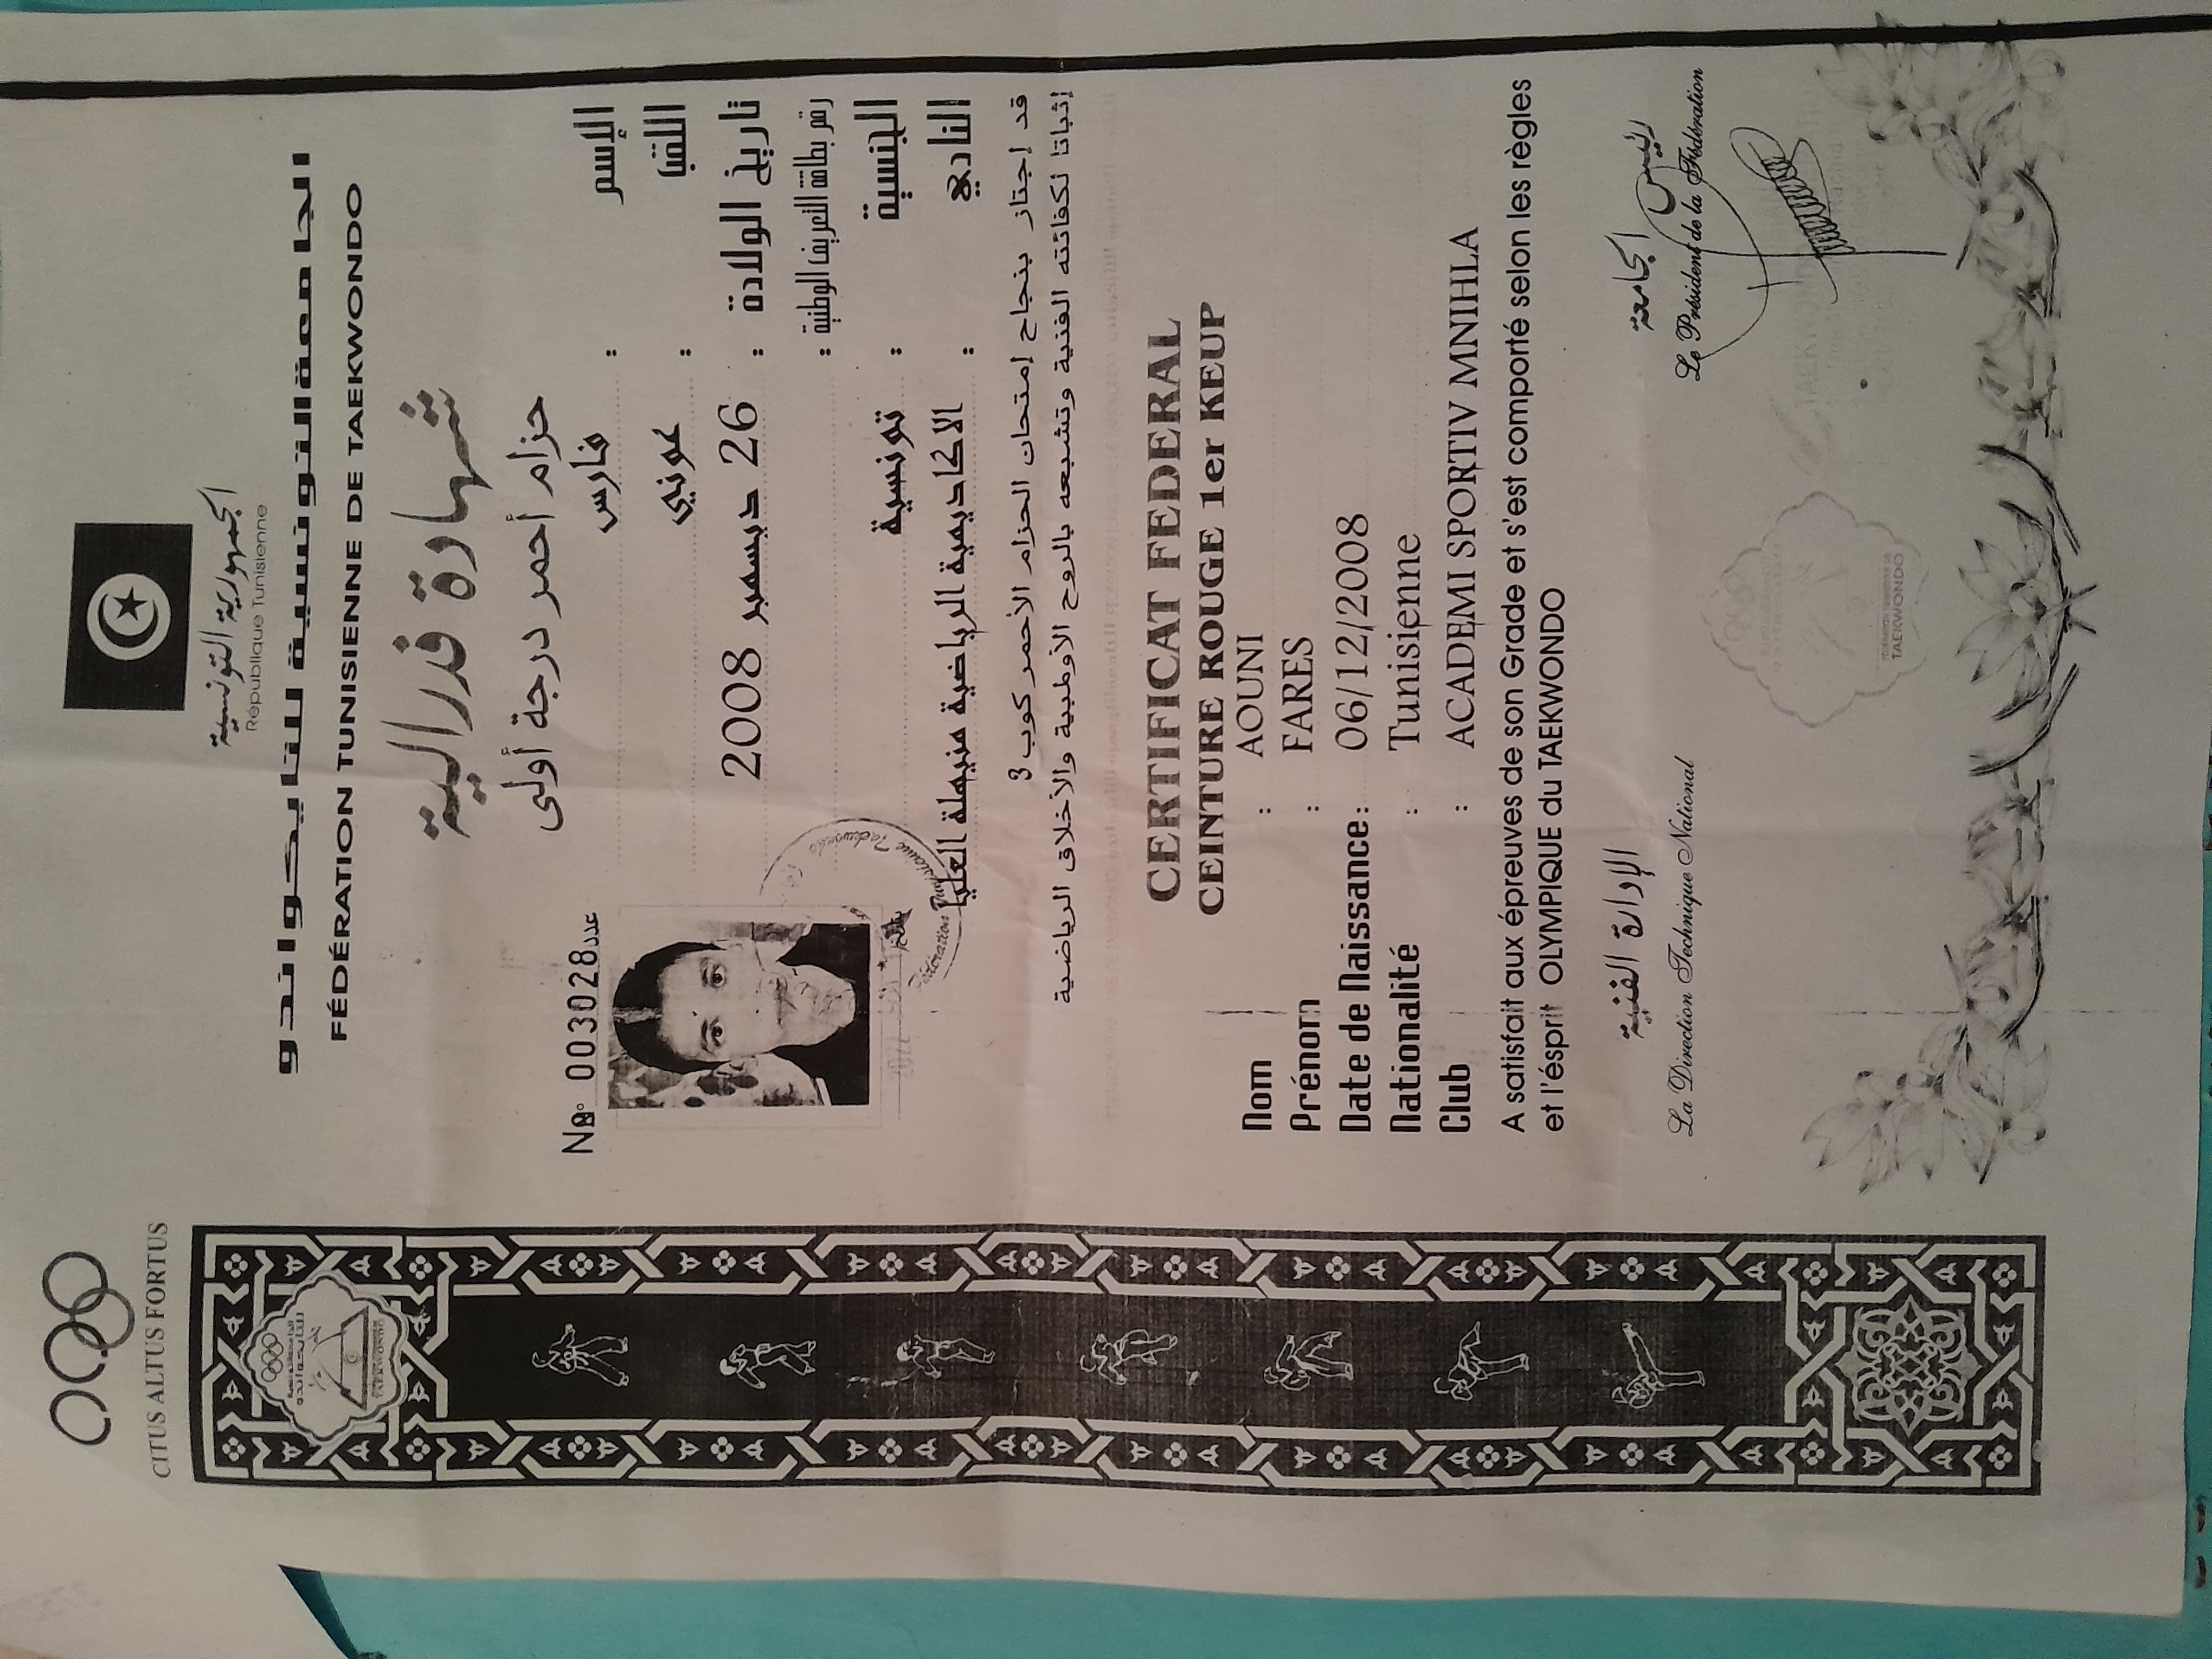 CITUS ALTUS FORTUS
الجمهورية التونسية
République Tunisienne
الجامعة التونسية للتايكواندو
FÉDÉRATION TUNISIENNE DE TAEKWONDO
شهادة فدرالية
حزام أحمر درجة أولى
N° 003028 عدد
الإسم : فارس
اللقب : عوني
تاريخ الولادة : 26 ديسمبر 2008
رقم بطاقة التعريف الوطنية :
الجنسية : تونسية
النادي : الاكاديمية الرياضية منيهلة العليا
قد إجتاز بنجاح إمتحان الحزام الأحمر كوب 3
إثباتا لكفائته الفنية وتشبعه بالروح الأولمبية والأخلاق الرياضية
CERTIFICAT FEDERAL
CEINTURE ROUGE 1er KEUP
Nom : AOUNI
Prénom : FARES
Date de Naissance : 06/12/2008
Nationalité : Tunisienne
Club : ACADEMI SPORTIV MNIHLA
A satisfait aux épreuves de son Grade et s'est comporté selon les règles
et l'ésprit OLYMPIQUE du TAEKWONDO
الإدارة الفنية
La Direction Technique National
رئيس الجامعة
Le Président de la Fédération
TAEKWONDO